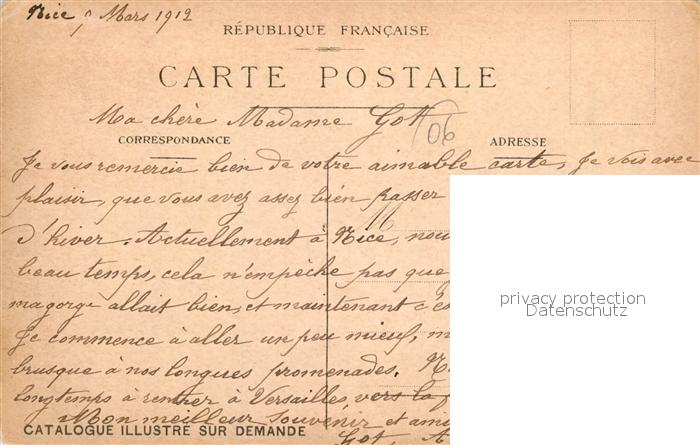 Nice 9 Mars 1912
RÉPUBLIQUE FRANÇAISE
CARTE POSTALE
Ma chère Madame Got
06
CORRESPONDANCE
ADRESSE
Je vous remercie bien de votre aimable carte, Je vois avec
plaisir, que vous avez assez bien passer
d'hiver. Actuellement à Nice, nou
beau temps, cela n'empêche pas que
privacy protection
ma gorge allait bien, et maintenant c'es
Datenschutz
Je commence à aller un peu mieux, m
brusque à nos longues promenades. N
longtemps à rentrer à Versailles vers la
Mon meilleur souvenir et ami
CATALOGUE ILLUSTRÉ SUR DEMANDE
Got, A